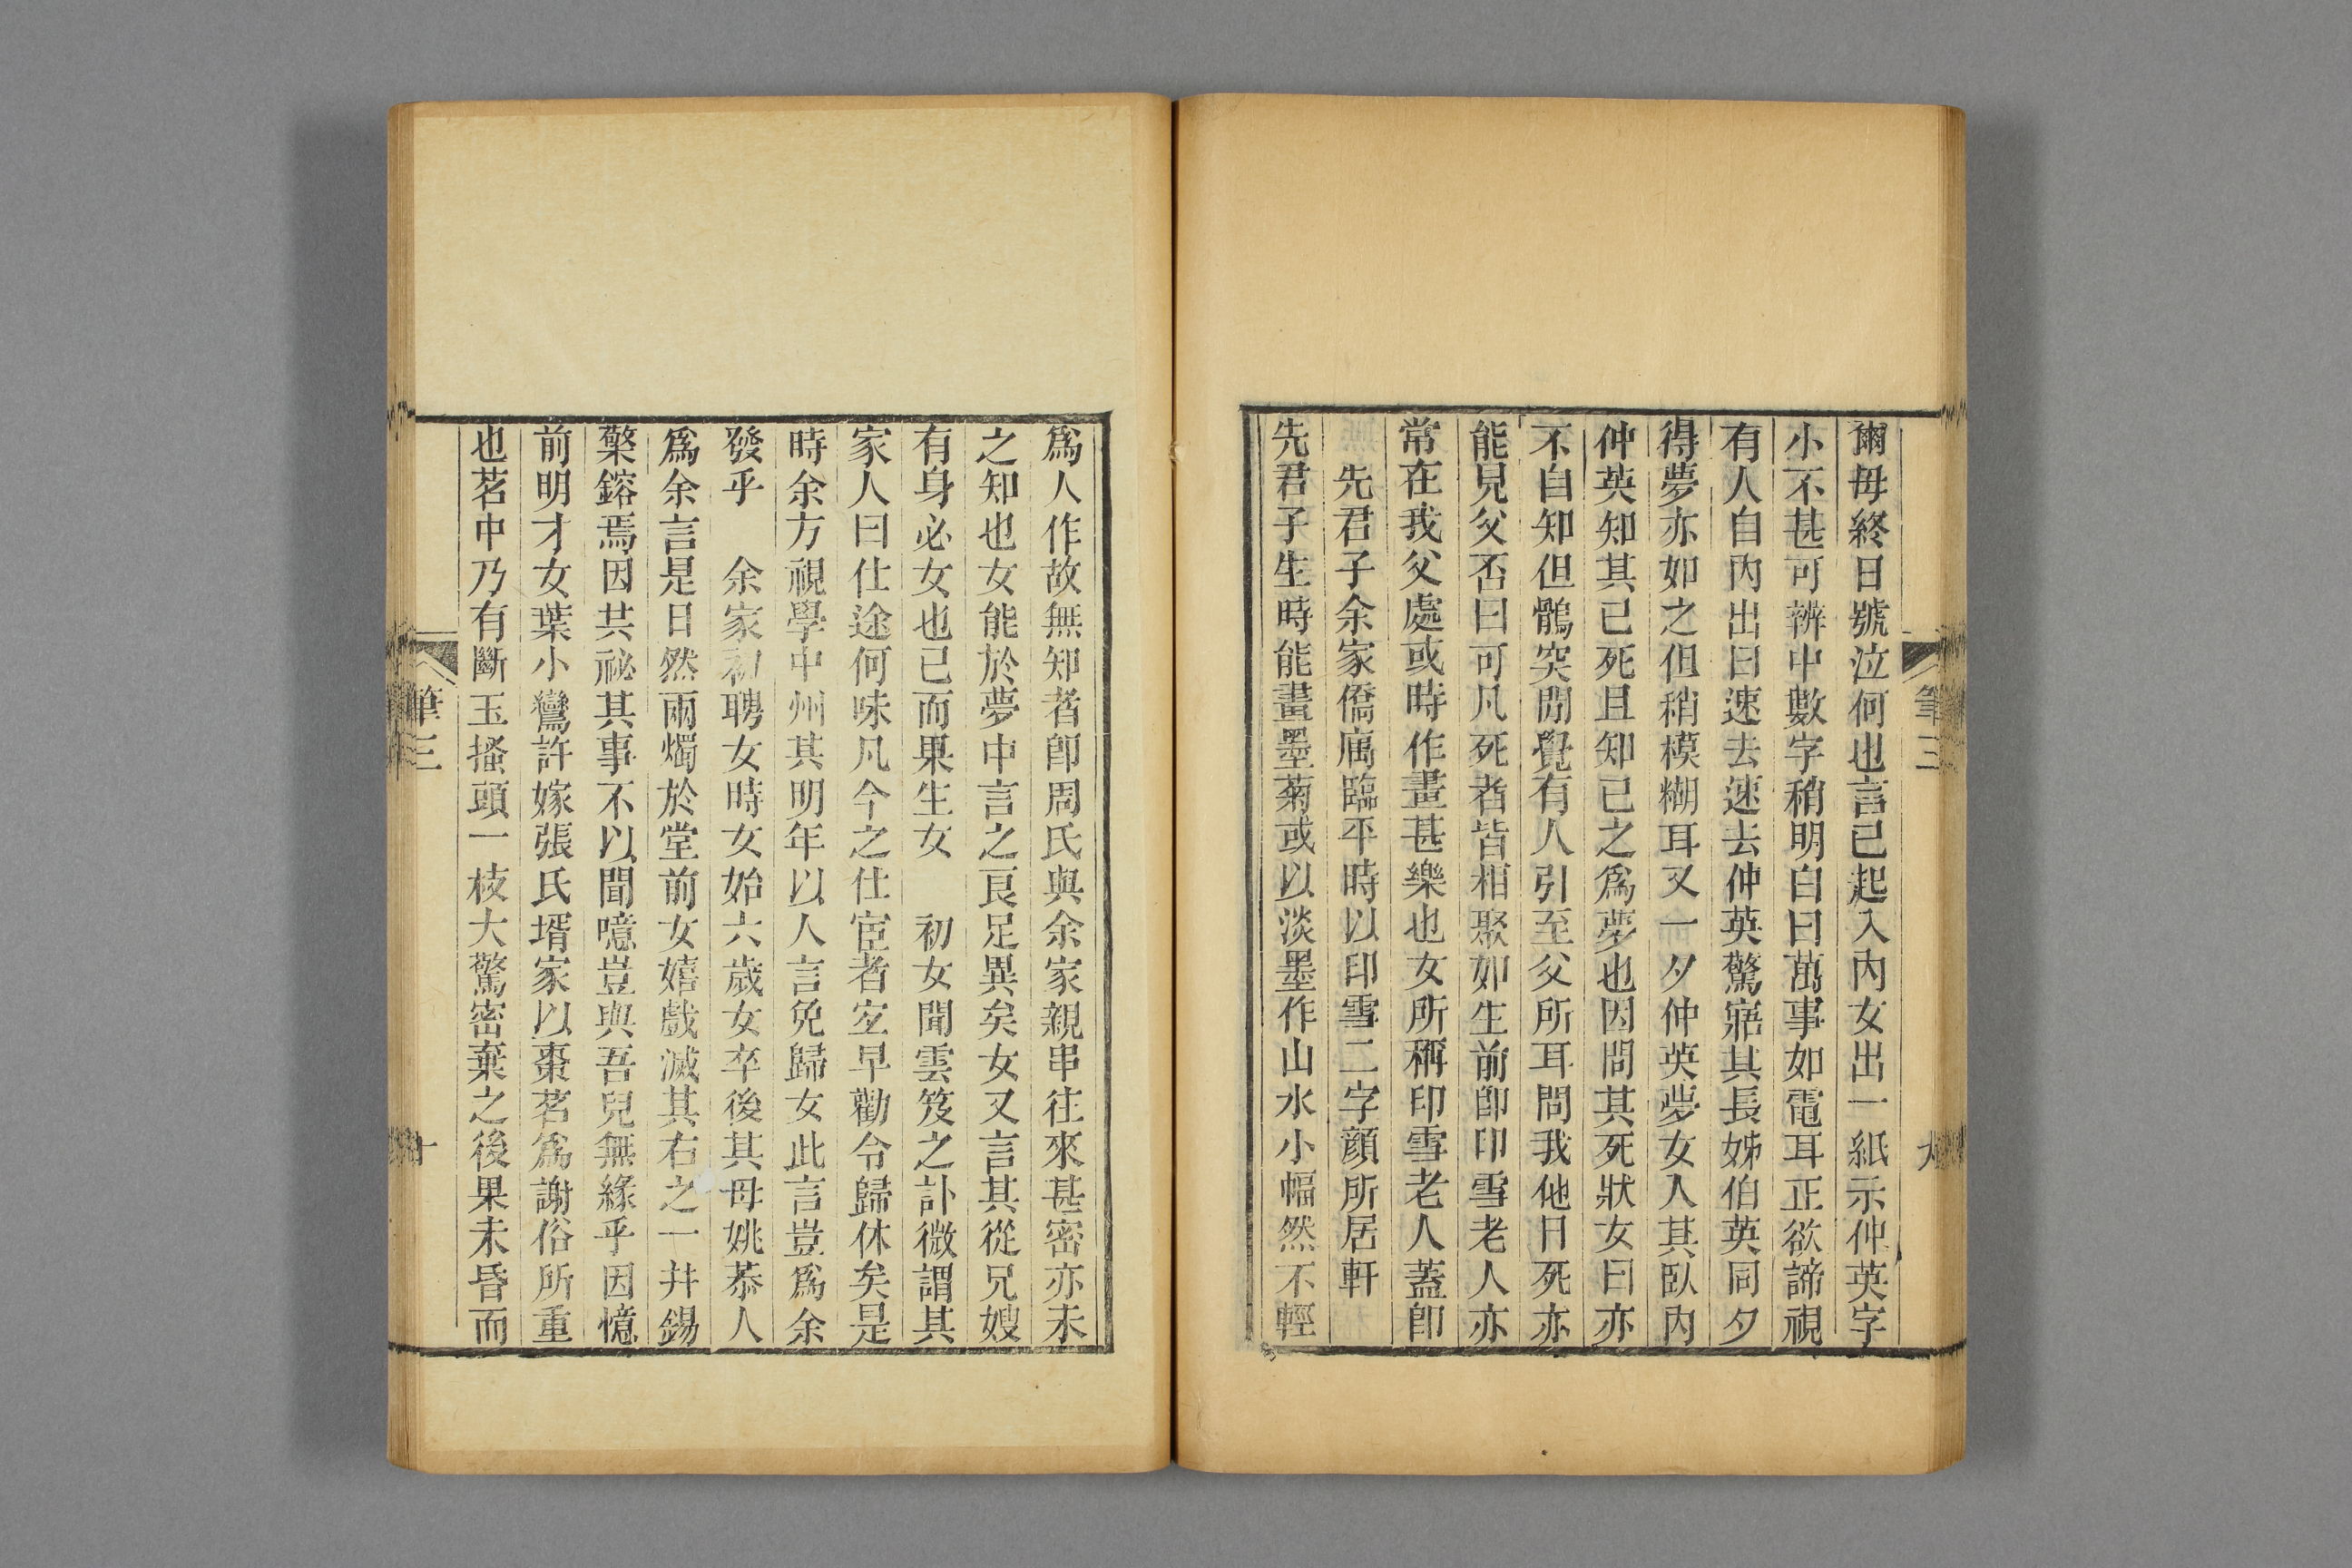 爾母終日號泣何也言已起入內女出一紙示仲英字
小不甚可辨中數字稍明白曰萬事如電耳正欲諦視
有人自內出曰速去速去仲英驚寤其長姊伯英同夕
得夢亦如之但稍模糊耳又一夕仲英夢女入其臥內
仲英知其已死且知已之爲夢也因問其死狀女曰亦
不自知但鶻突閒覺有人引至父所耳問我他日死亦
能見父否曰可凡死者皆相聚如生前卽印雪老人亦
常在我父處或時作畫甚樂也女所稱印雪老人蓋卽
先君子余家僑寓臨平時以印雪二字顏所居軒
先君子生時能畫墨菊或以淡墨作山水小幅然不輕
筆三
九
爲人作故無知者卽周氏與余家親串往來甚密亦未
之知也女能於夢中言之良足異矣女又言其從兄嫂
有身必女也已而果生女　初女聞雲笈之訃微謂其
家人曰仕途何味凡今之仕宦者宜早勸令歸休矣是
時余方視學中州其明年以人言免歸女此言豈爲余
發乎　余家初聘女時女始六歲女卒後其母姚恭人
爲余言是日然兩燭於堂前女嬉戲滅其右之一幷錫
檠鎔焉因共祕其事不以聞噫豈與吾兒無緣乎因憶
前明才女葉小鸞許嫁張氏壻家以棗茗爲謝俗所重
也茗中乃有斷玉搔頭一枝大驚密棄之後果未昏而
筆三
十